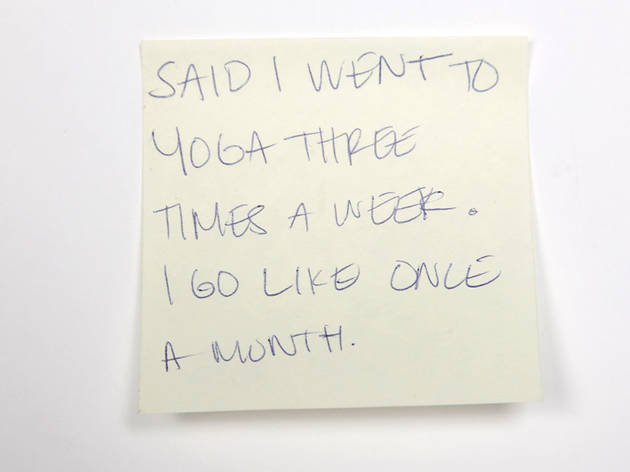 SAID I WENT TO
YOGA THREE
TIMES A WEEK.
I GO LIKE ONCE
A MONTH.